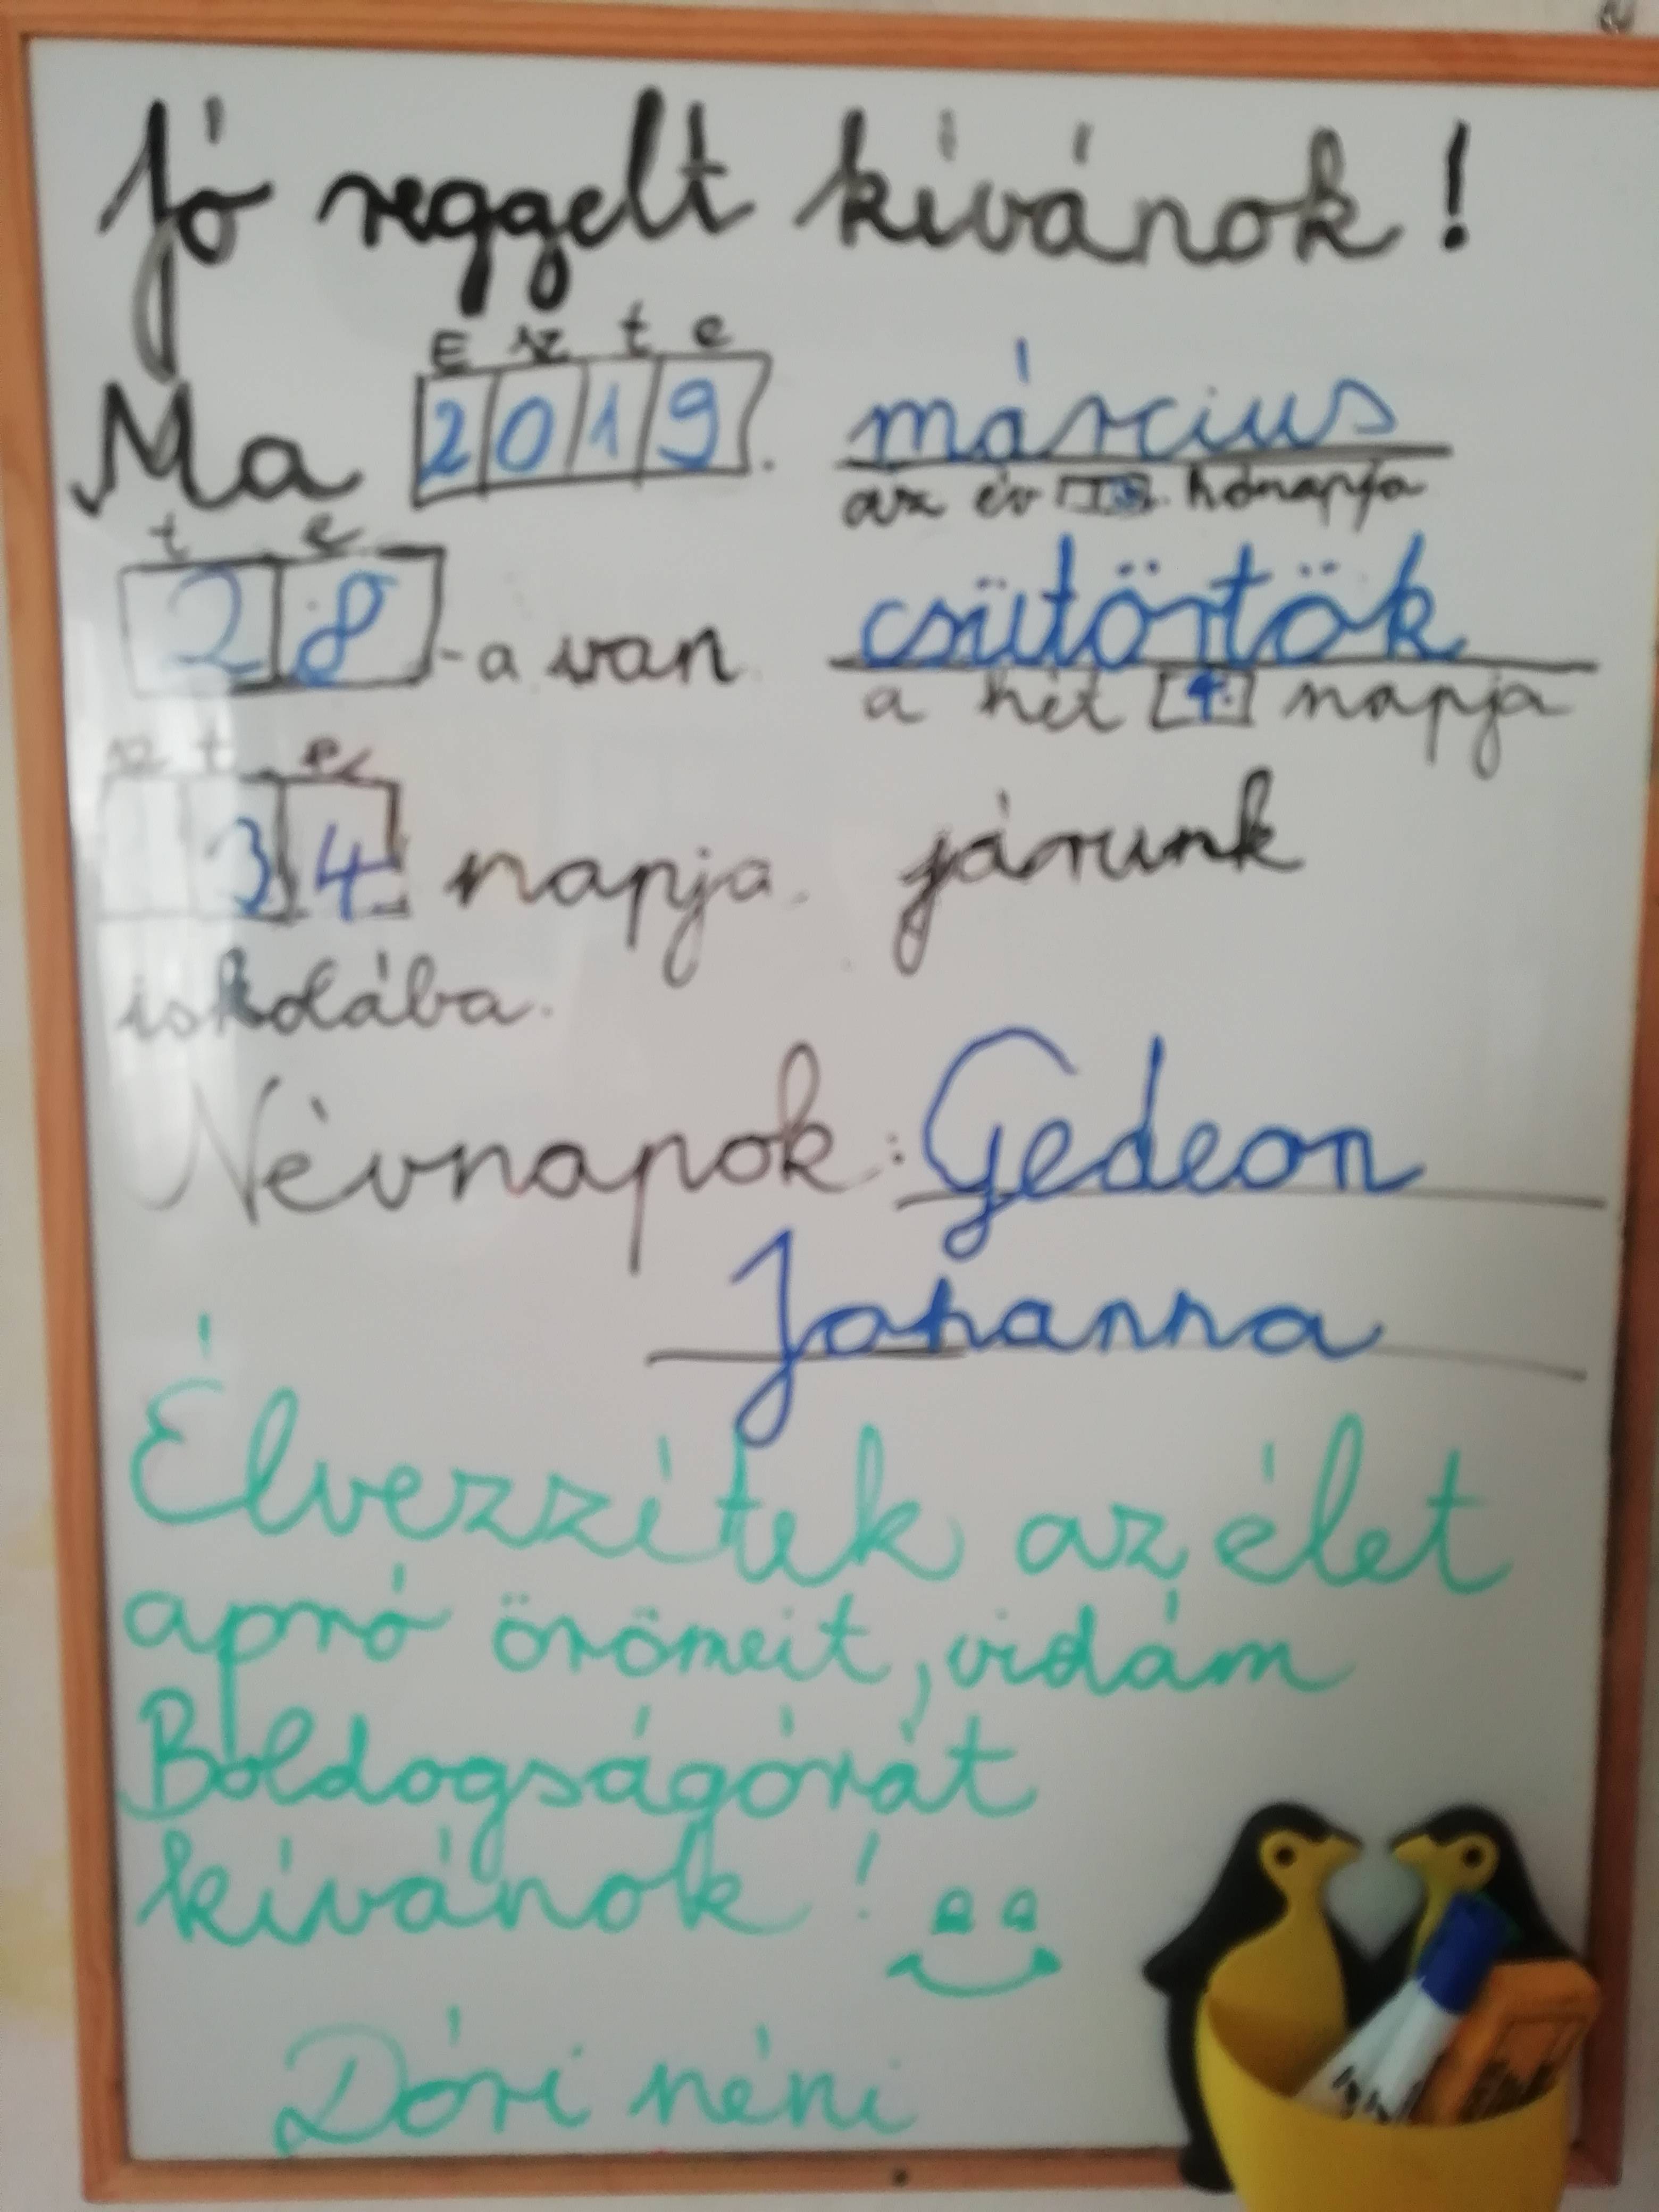 Jó reggelt kívánok!
E sz t e
Ma 2019. március
az év 3. hónapja
t e
28-a van csütörtök
a hét 4. napja
sz t e
34 napja járunk
iskolába.
Névnapok: Gedeon
Johanna
Élvezzétek az élet
apró örömeit, vidám
Boldogságórát
kívánok!
Dóri néni